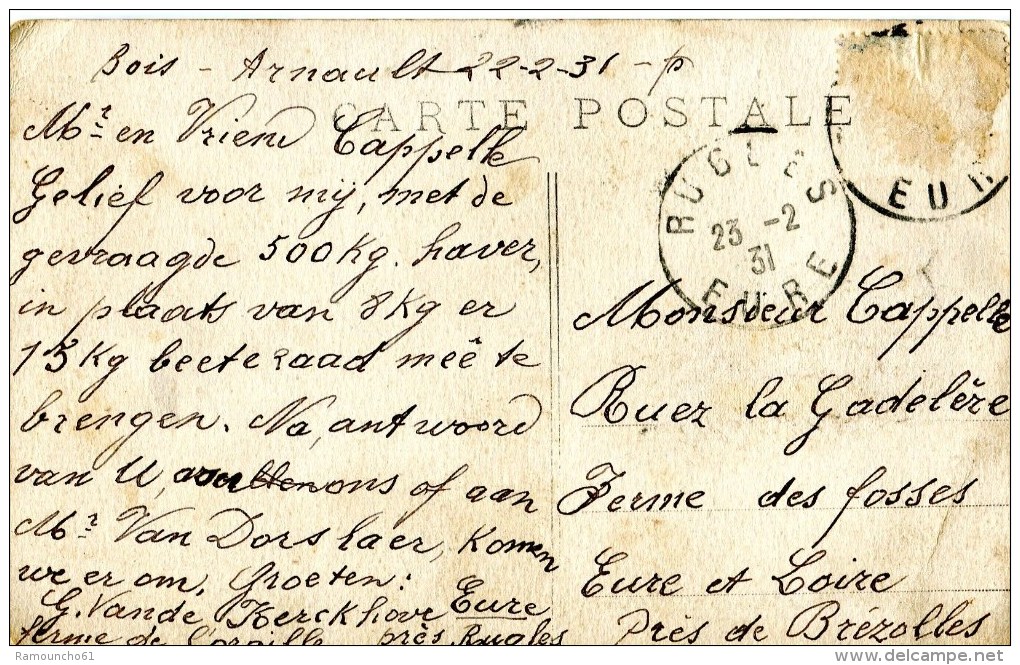 Bois - Arnault 22-2-31 -
CARTE POSTALE
Mr en Vriend Cappelle
Gelief voor mij, met de
gevraagde 500 Kg. haver,
in plaats van 8 Kg er
13 Kg beete zaad meê te
brengen. Na, antwoord
van U, ons of aan
Mr Van Dorslaer, komen
we er om. Groeten:
G. Vande Kerckhove Eure
ferme de près Rugles
RUGLES
23 -2
31
EURE
EUR
Monsieur Cappelle
Ruez la Gadelêre
Ferme des fosses
Eure et Loire
Près de Brézolles
Ramouncho61
delcampe.net